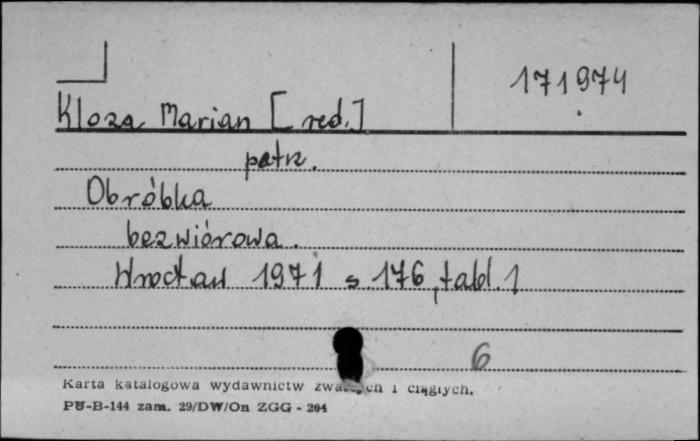 171974
Kloza Marian [red.]
patrz.
Obróbka
bezwiórowa.
Wrocław 1971 s. 176, tabl. 1
6
Karta katalogowa wydawnictw i ciągłych.
PU-B-144 zam. 29/DW/On ZGG - 204